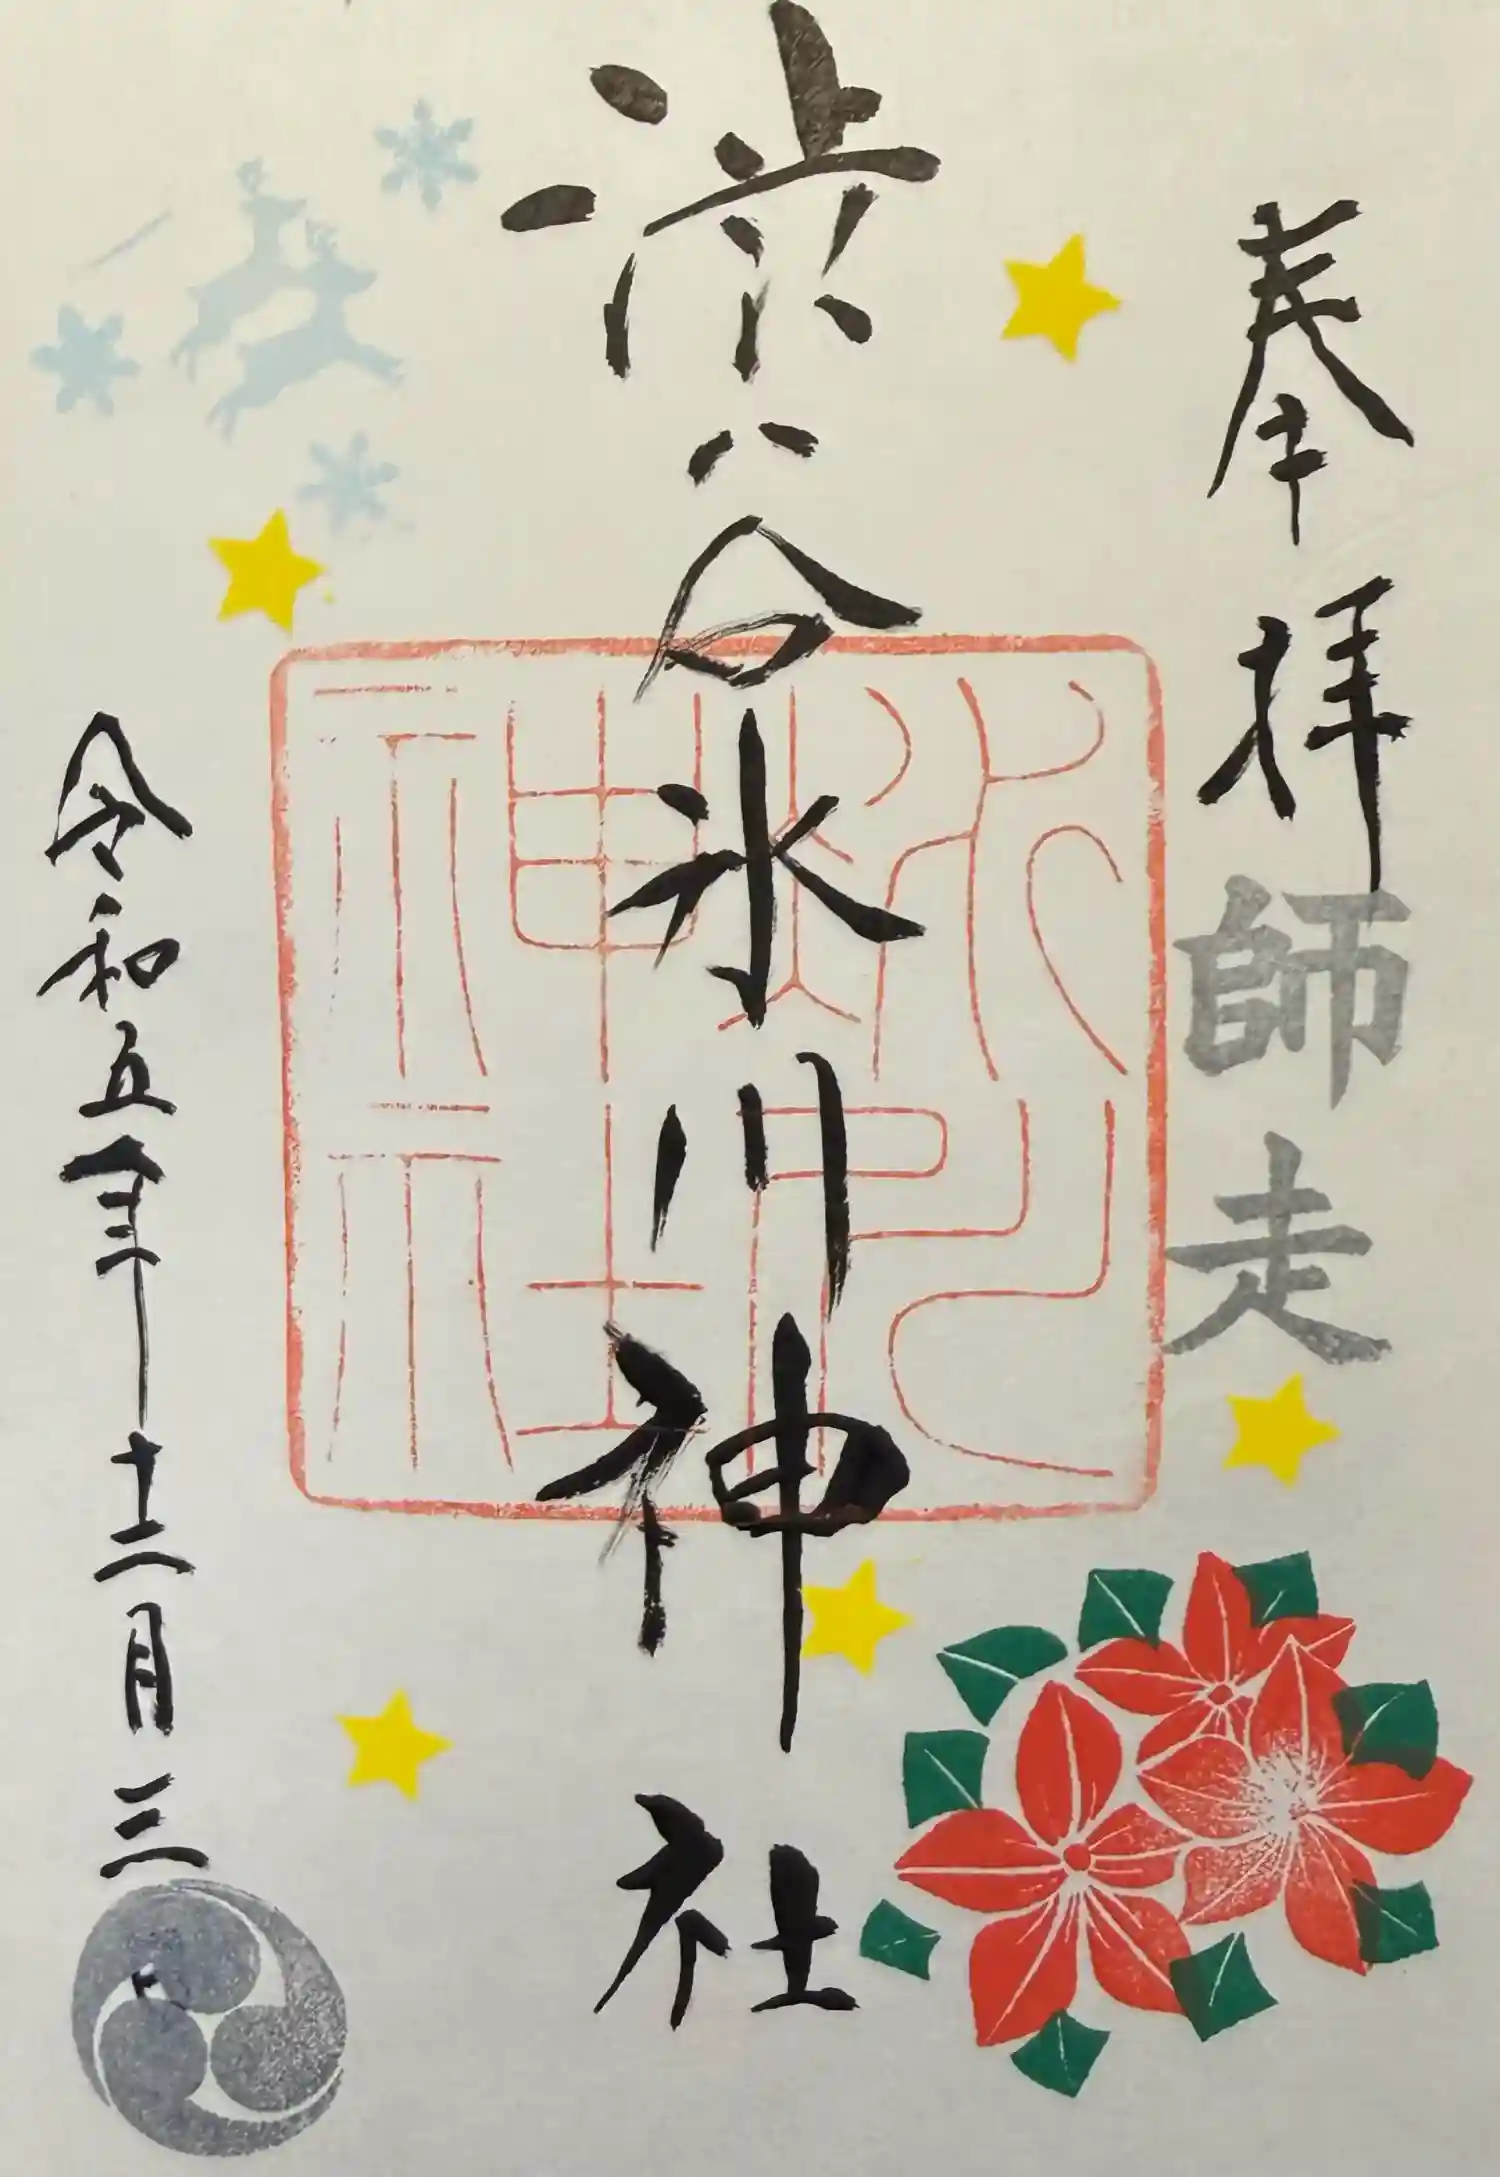 奉拝
師走
渋谷氷川神社
氷川神社
令和五年十二月三日